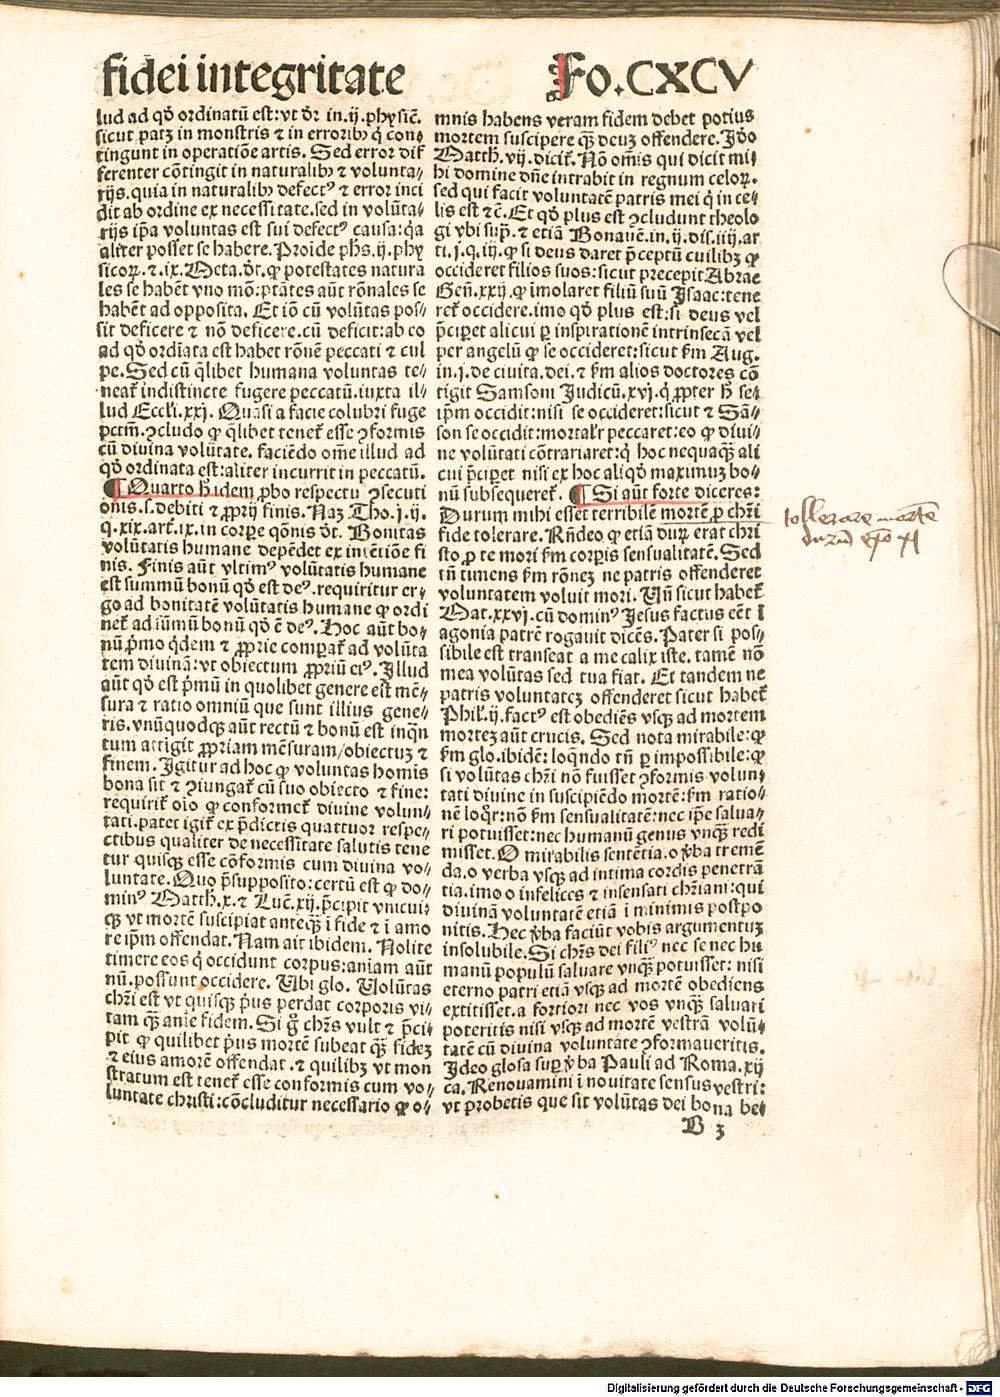 fidei integritate
Fo.CXCV
lud ad qđ ordinatū est: vt dr̄ in.ij.phẏsic̄.
sicut patʒ in monstris ⁊ in erroribꝰ q̄ con⸗
tingunt in operatiōe artis. Sed error dif
ferenter cōtingit in naturalibꝰ ⁊ volunta⸗
rijs. quia in naturalibꝰ defectꝰ ⁊ error inci
dit ab ordine ex necessitate. sed in volūta⸗
rijs ip̄a voluntas est sui defectꝰ causa: q̄a
aliter posset se habere. Proīde ph̄s.ij.phẏ
sicoꝝ.⁊.ix.Meta.dt.ꝙ potestates natura
les se habēt vno mō: ptātes aūt rōnales se
habēt ad opposita. Et iō cū volūtas pos⸗
sit deficere ⁊ nō deficere. cū deficit: ab eo
ad qđ ordīata est habet rōnē peccati ⁊ cul
pe. Sed cū q̄libet humana voluntas te⸗
neat᷑ indistincte fugere peccatū. iuxta il⸗
lud Eccli.xxj. Quasi a facie colubri fuge
pctm̄. ꝯcludo ꝙ q̄libet tenet᷑ esse ꝯformis
cū divina volūtate. faciēdo om̄e illud ad
qđ ordinata est: aliter incurrit in peccatū.
¶ Quarto h̄ idem ꝓbo respectu ꝯsecuti
onis.s.debiti ⁊ ꝓprij finis. Naʒ Tho.j.ij.
q.xix.art᷑.ix.in corpe qōnis dt. Bonitas
volūtatis humane depēdet ex intētiōe fi
nis. Finis aūt vltimꝰ volūtatis humane
est summū bonū qđ est deꝰ. requiritur er⸗
go ad bonitatē volūtatis humane ꝙ ordi
net᷑ ad sūmū bonū qđ ē deꝰ. Hoc aūt bo⸗
nū p̄mo q̄dem ⁊ ꝓprie compat᷑ ad volūta
tem divinā: vt obiectum ꝓpriū eiꝰ. Illud
aūt qđ est p̄mū in quolibet genere est mē⸗
sura ⁊ ratio omniū que sunt illius gene⸗
ris. vnūquodqꝫ aūt rectū ⁊ bonū est inq̄n
tum attigit ꝓpriam mēsuram/obiectuʒ ⁊
finem. Igitur ad hoc ꝙ voluntas homīs
bona sit ⁊ ꝯiungat᷑ cū suo obiecto ⁊ fine:
requirit᷑ oīo ꝙ conformet᷑ divine volun⸗
tati. patet igit᷑ ex p̄dictis quattuor respe⸗
ctibus qualiter de necessitate salutis tene
tur quisqꝫ esse cōformis cum divina vo⸗
luntate. Quo p̄supposito: certū est ꝙ do⸗
minꝰ Matth.x.⁊ Luc̄.xij.p̄cipit vnicui⸗
qꝫ vt mortē suscipiat anteq̄ʒ ī fide ⁊ ī amo
re ip̄m offendat. Nam ait ibidem. Nolite
timere eos q̄ occidunt corpus: aniam aūt
nū.possunt occidere. Ubi glo. Uolūtas
chr̄i est vt quisqꝫ pꝰus perdat corporis vi⸗
tam q̄ʒ anīe fidem. Si gͦ chr̄s vult ⁊ p̄ci⸗
pit ꝙ quilibet pꝰus mortē subeat q̄ʒ fideʒ
⁊ eius amorē offendat.⁊ quilibꝫ vt mon
stratum est tenet᷑ esse conformis cum vo⸗
luntate christi: cōcluditur necessario ꝙ o⸗
mnis habens veram fidem debet potius
mortem suscipere q̄ʒ deuʒ offendere. Iđo
Matth.vij.dicit᷑. Nō om̄is qui dicit mi⸗
hi domine dn̄e intrabit in regnum celoꝝ.
sed qui facit voluntatē patris mei q̄ in ce⸗
lis est ⁊c̄. Et qđ plus est ꝯcludunt theolo
gi vbi sup̄.⁊ etiā Bonauē.in.ij.dis.iiij.ar
ti.j.q.iij.ꝙ si deus daret p̄ceptū cuilibꝫ ꝙ
occideret filios suos: sicut precepit Abrae
Gen̄.xxij.ꝙ īmolaret filiū suū Isaac: tene
ret᷑ occidere. imo qđ plus est: si deus vel
p̄cip̄et alicui ꝑ inspirationē intrinsecā vel
per angelū ꝙ se occideret: sicut ẜm Aug.
in.j.de civita.dei.⁊ ẜm alios doctores cō
tigit Samsoni Judicū.xvj.q̄ ꝓpter h̄ se⸗
ip̄m occidit: nisi se occideret: sicut ⁊ Sā⸗
son se occidit: mortalr̄ peccaret: eo ꝙ divi⸗
ne volūtati cōtrariaret᷑: q̄ hoc nequaq̄ʒ ali
cui p̄cip̄et nisi ex hoc aliqđ maximuʒ bo⸗
nū subsequeret᷑. ¶ Si aūt forte diceres:
Durum mihi esset terribilē mortē ꝓ chr̄i
fide tolerare. Rn̄deo ꝙ etiā duꝝ erat chri
sto ꝓ te mori ẜm corpis sensualitatē. Sed
tn̄ timens ẜm rōneʒ ne patris offenderet
voluntatem voluit mori. Un̄ sicut habet᷑
Mat.xxvj.cū dominꝰ Jesus factus eēt ī
agonia patrē rogavit dicēs. Pater si pos⸗
sibile est transeat a me calix iste. tamē nō
mea volūtas sed tua fiat. Et tandem ne
patris voluntateʒ offenderet sicut habet᷑
Phil᷑.ij.factꝰ est obediēs vsqꝫ ad mortem
morteʒ aūt crucis. Sed nota mirabile: ꝙ
ẜm glo.ibidē: loq̄ndo tn̄ ꝑ impossibile: ꝙ
si volūtas chr̄i nō fuisset ꝯformis volun⸗
tati divine in suscipiēdo mortē: ẜm ratio⸗
nē loq̄r: nō ẜm sensualitatē: nec ip̄e salua⸗
ri potuisset: nec humanū genus vnq̄ʒ redi
misset. O mirabilis sentētia. o v̄ba tremē
da. o verba vsqꝫ ad intima cordis penetrā
tia. imo o infelices ⁊ insensati chr̄iani: qui
divinā voluntatē etiā ī minimis postpo
nitis. Hec v̄ba faciūt vobis argumentuʒ
insolubile. Si chr̄s dei filiꝰ nec se nec hu
manū populū saluare vnq̄ʒ potuisset: nisi
eterno patri etiā vsqꝫ ad mortē obediens
extitisset. a fortiori nec vos vnq̄ʒ saluari
poteritis nisi vsqꝫ ad mortē vestrā volū⸗
tatē cū divina voluntate ꝯformaueritis.
Ideo glosa suꝑ v̄ba Pauli ad Roma.xij
ca. Renouamini ī nouitate sensus vestri:
vt probetis que sit volūtas dei bona be⸗
B 3
tollerare mortē
Digitalisierung gefördert durch die Deutsche Forschungsgemeinschaft - DFG